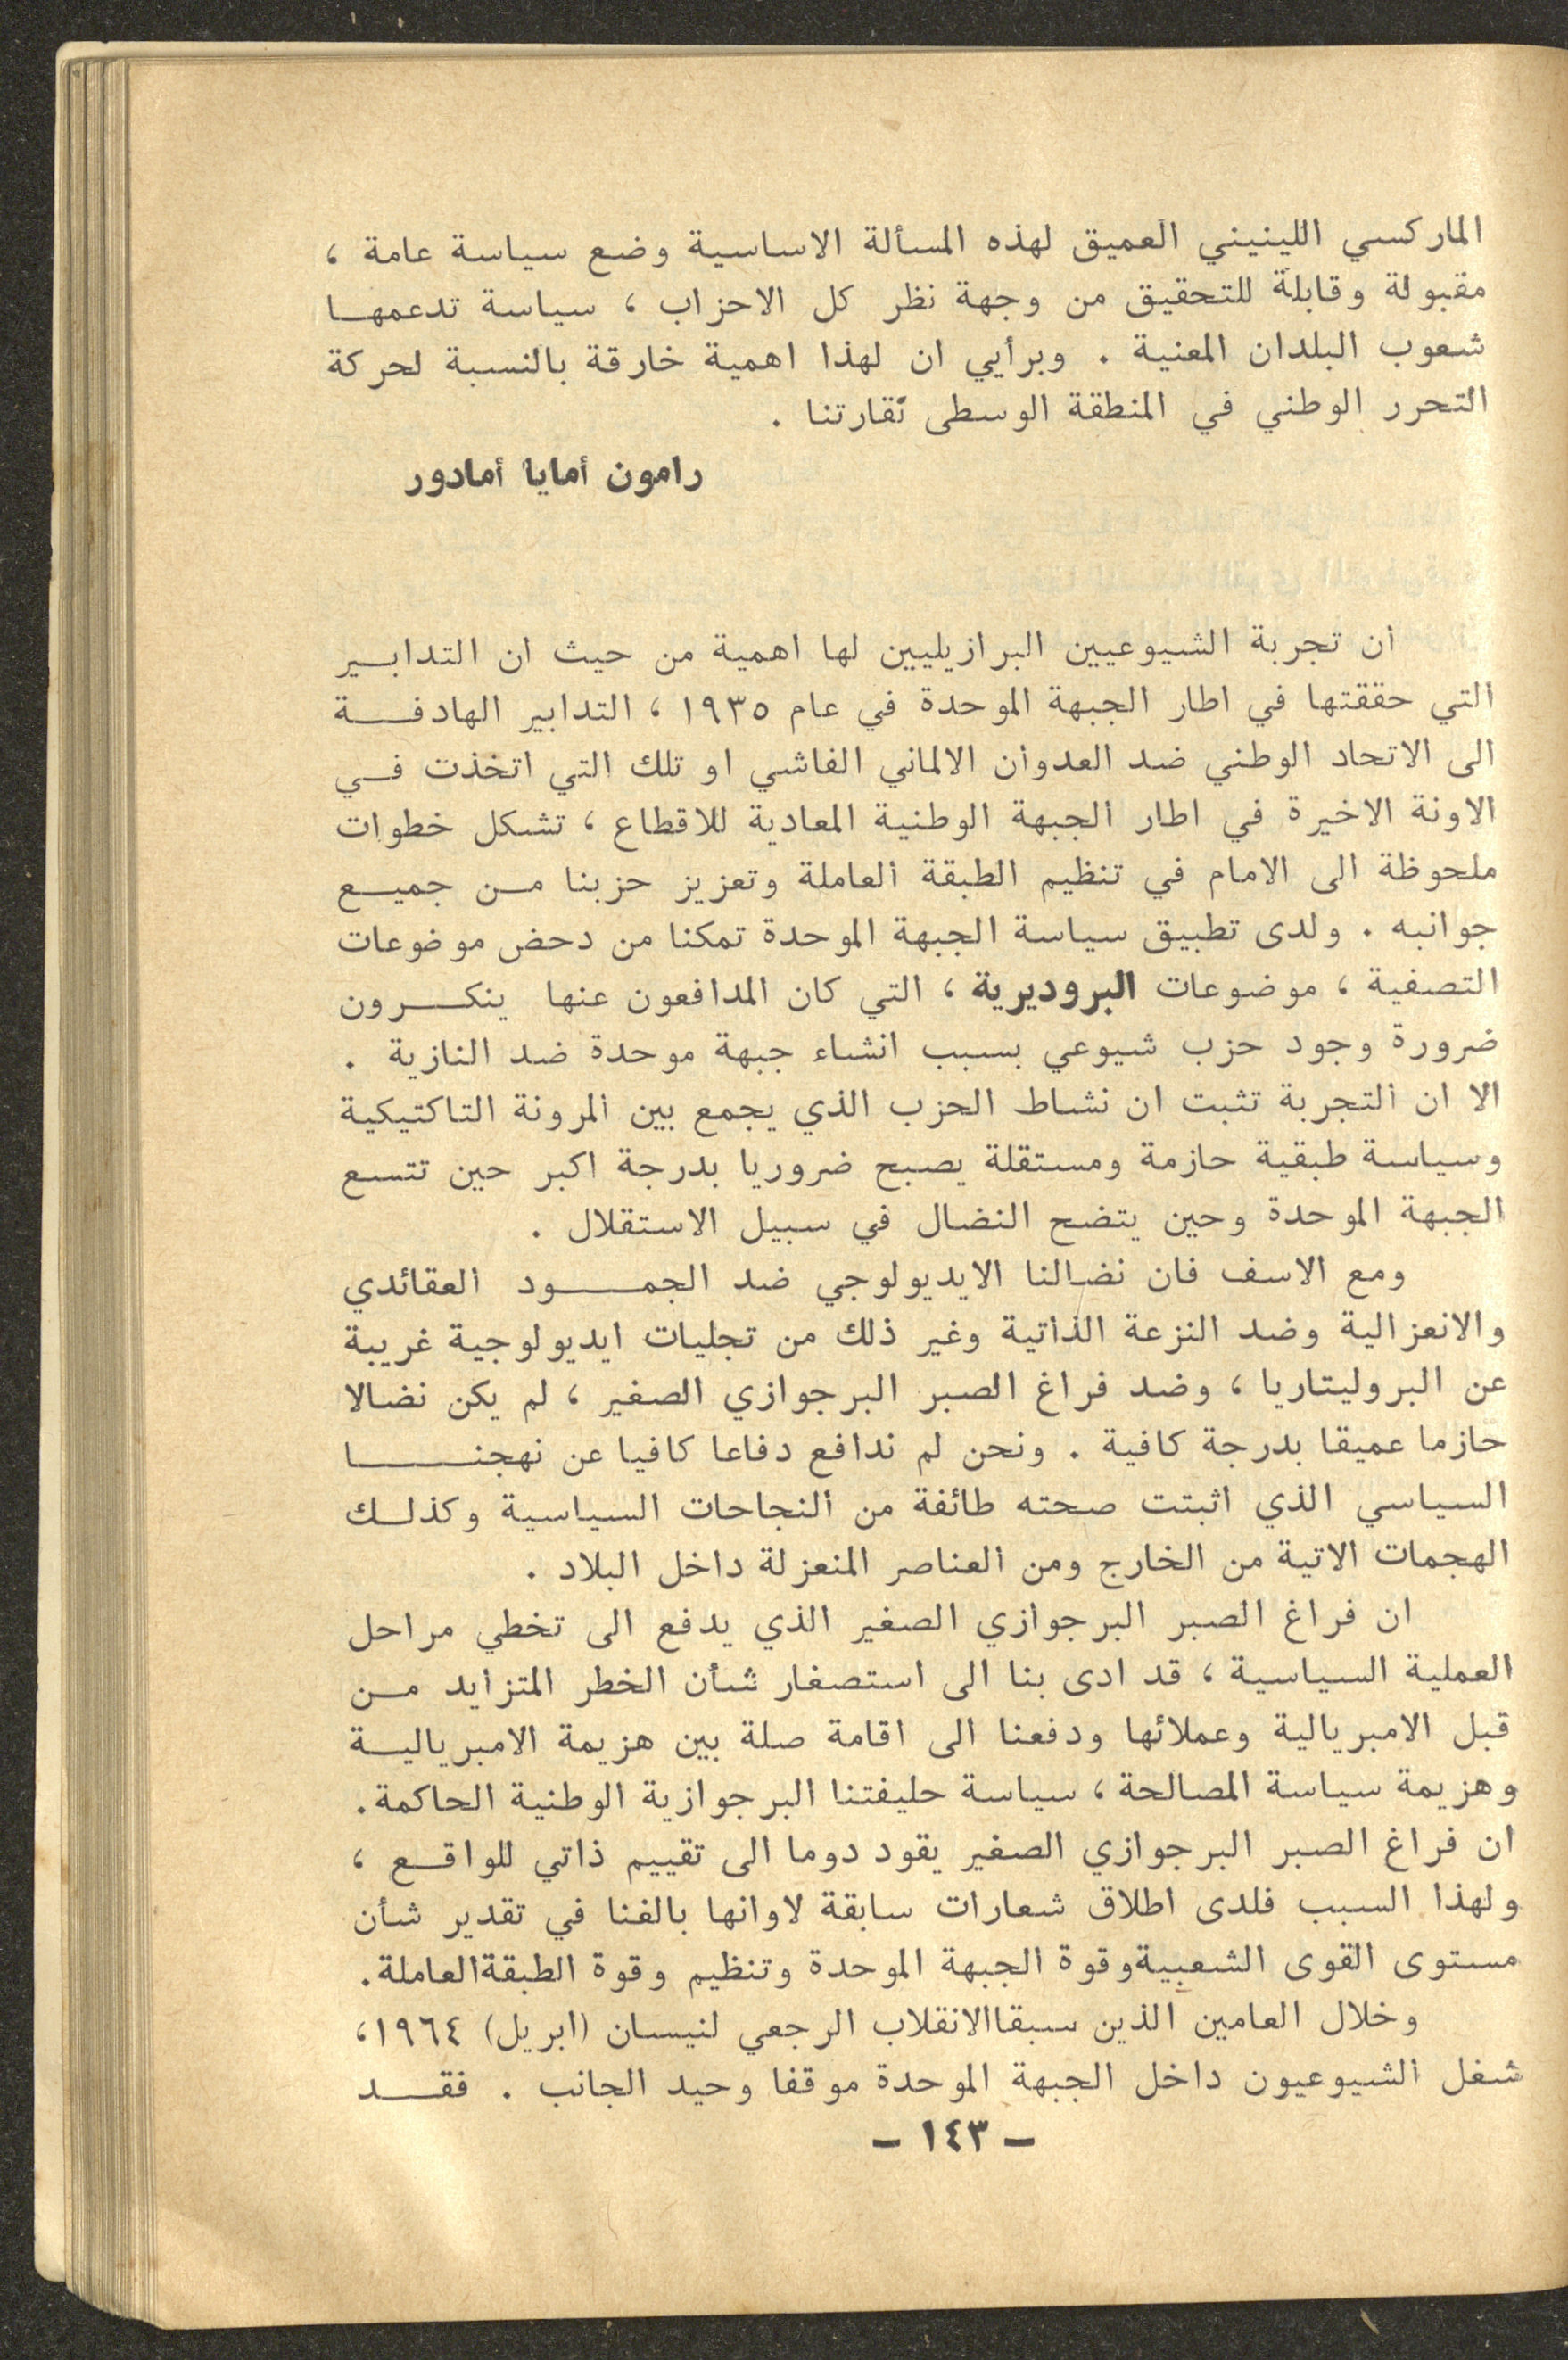 الماركسي اللينيني العميق لهذه المسألة الاساسية وضع سياسة عامة ،
مقبولة وقابلة للتحقيق من وجهة نظر كل الاحزاب ، سياسة تدعمها
شعوب البلدان المعنية . وبرأيي ان لهذا اهمية خارقة بالنسبة لحركة
التحرر الوطني في المنطقة الوسطى لقارتنا .
رامون أمايا أمادور
ان تجربة الشيوعيين البرازيليين لها اهمية من حيث ان التدابير
التي حققتها في اطار الجبهة الموحدة في عام ١٩٣٥ ، التدابير الهادفة
الى الاتحاد الوطني ضد العدوان الالماني الفاشي او تلك التي اتخذت في
الاونة الاخيرة في اطار الجبهة الوطنية المعادية للاقطاع ، تشكل خطوات
ملحوظة الى الامام في تنظيم الطبقة العاملة وتعزيز حزبنا من جميع
جوانبه . ولدى تطبيق سياسة الجبهة الموحدة تمكنا من دحض موضوعات
التصفية ، موضوعات البروديرية ، التي كان المدافعون عنها ينكرون
ضرورة وجود حزب شيوعي بسبب انشاء جبهة موحدة ضد النازية .
الا ان التجربة تثبت ان نشاط الحزب الذي يجمع بين المرونة التاكتيكية
وسياسة طبقية حازمة ومستقلة يصبح ضروريا بدرجة اكبر حين تتسع
الجبهة الموحدة وحين يتضح النضال في سبيل الاستقلال .
ومع الاسف فان نضالنا الايديولوجي ضد الجمود العقائدي
والانعزالية وضد النزعة الذاتية وغير ذلك من تجليات ايديولوجية غريبة
عن البروليتاريا ، وضد فراغ الصبر البرجوازي الصغير ، لم يكن نضالا
حازما عميقا بدرجة كافية . ونحن لم ندافع دفاعا كافيا عن نهجنا
السياسي الذي اثبتت صحته طائفة من النجاحات السياسية وكذلك
الهجمات الاتية من الخارج ومن العناصر المنعزلة داخل البلاد .
ان فراغ الصبر البرجوازي الصغير الذي يدفع الى تخطي مراحل
العملية السياسية ، قد ادى بنا الى استصغار شأن الخطر المتزايد من
قبل الامبريالية وعملائها ودفعنا الى اقامة صلة بين هزيمة الامبريالية
وهزيمة سياسة المصالحة ، سياسة حليفتنا البرجوازية الوطنية الحاكمة.
ان فراغ الصبر البرجوازي الصغير يقود دوما الى تقييم ذاتي للواقع ،
ولهذا السبب فلدى اطلاق شعارات سابقة لاوانها بالغنا في تقدير شأن
مستوى القوى الشعبيةوقوة الجبهة الموحدة وتنظيم وقوة الطبقةالعاملة.
وخلال العامين الذين سبقاالانقلاب الرجعي لنيسان (ابريل) ١٩٦٤،
شغل الشيوعيون داخل الجبهة الموحدة موقفا وحيد الجانب . فقد
– ١٤٣ –